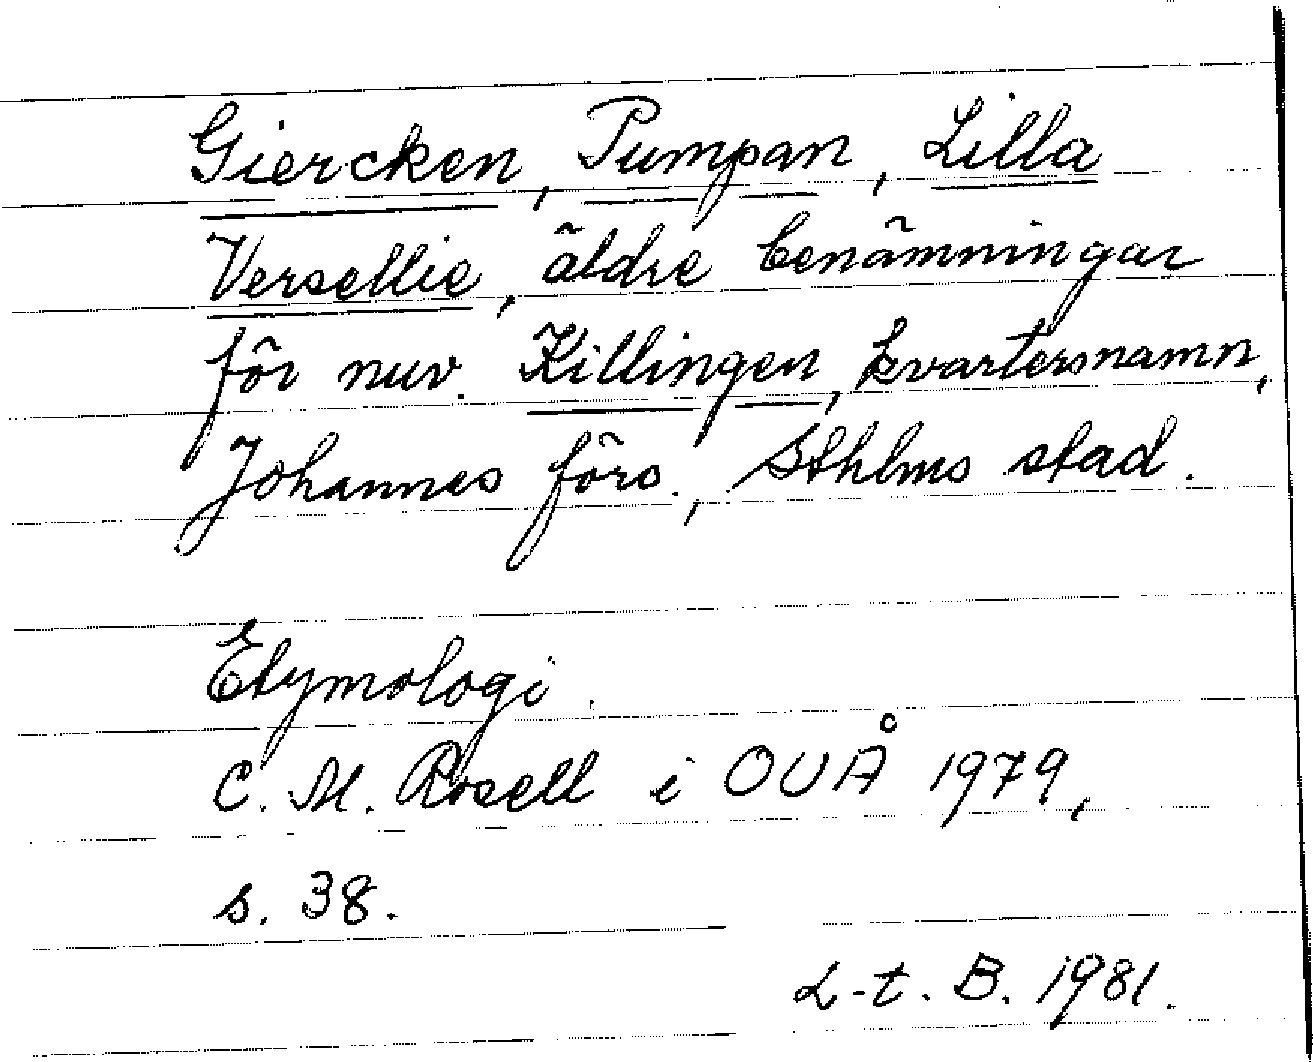 Giercken, Pumpan, Lilla
Versellie, äldre benämningar
för nuv. Killingen, kvartersnamn,
Johannes förs., Sthlms stad.
Etymologi.
C. M. Rosell i OUÅ 1979,
s. 38.
L-t. B. 1981.